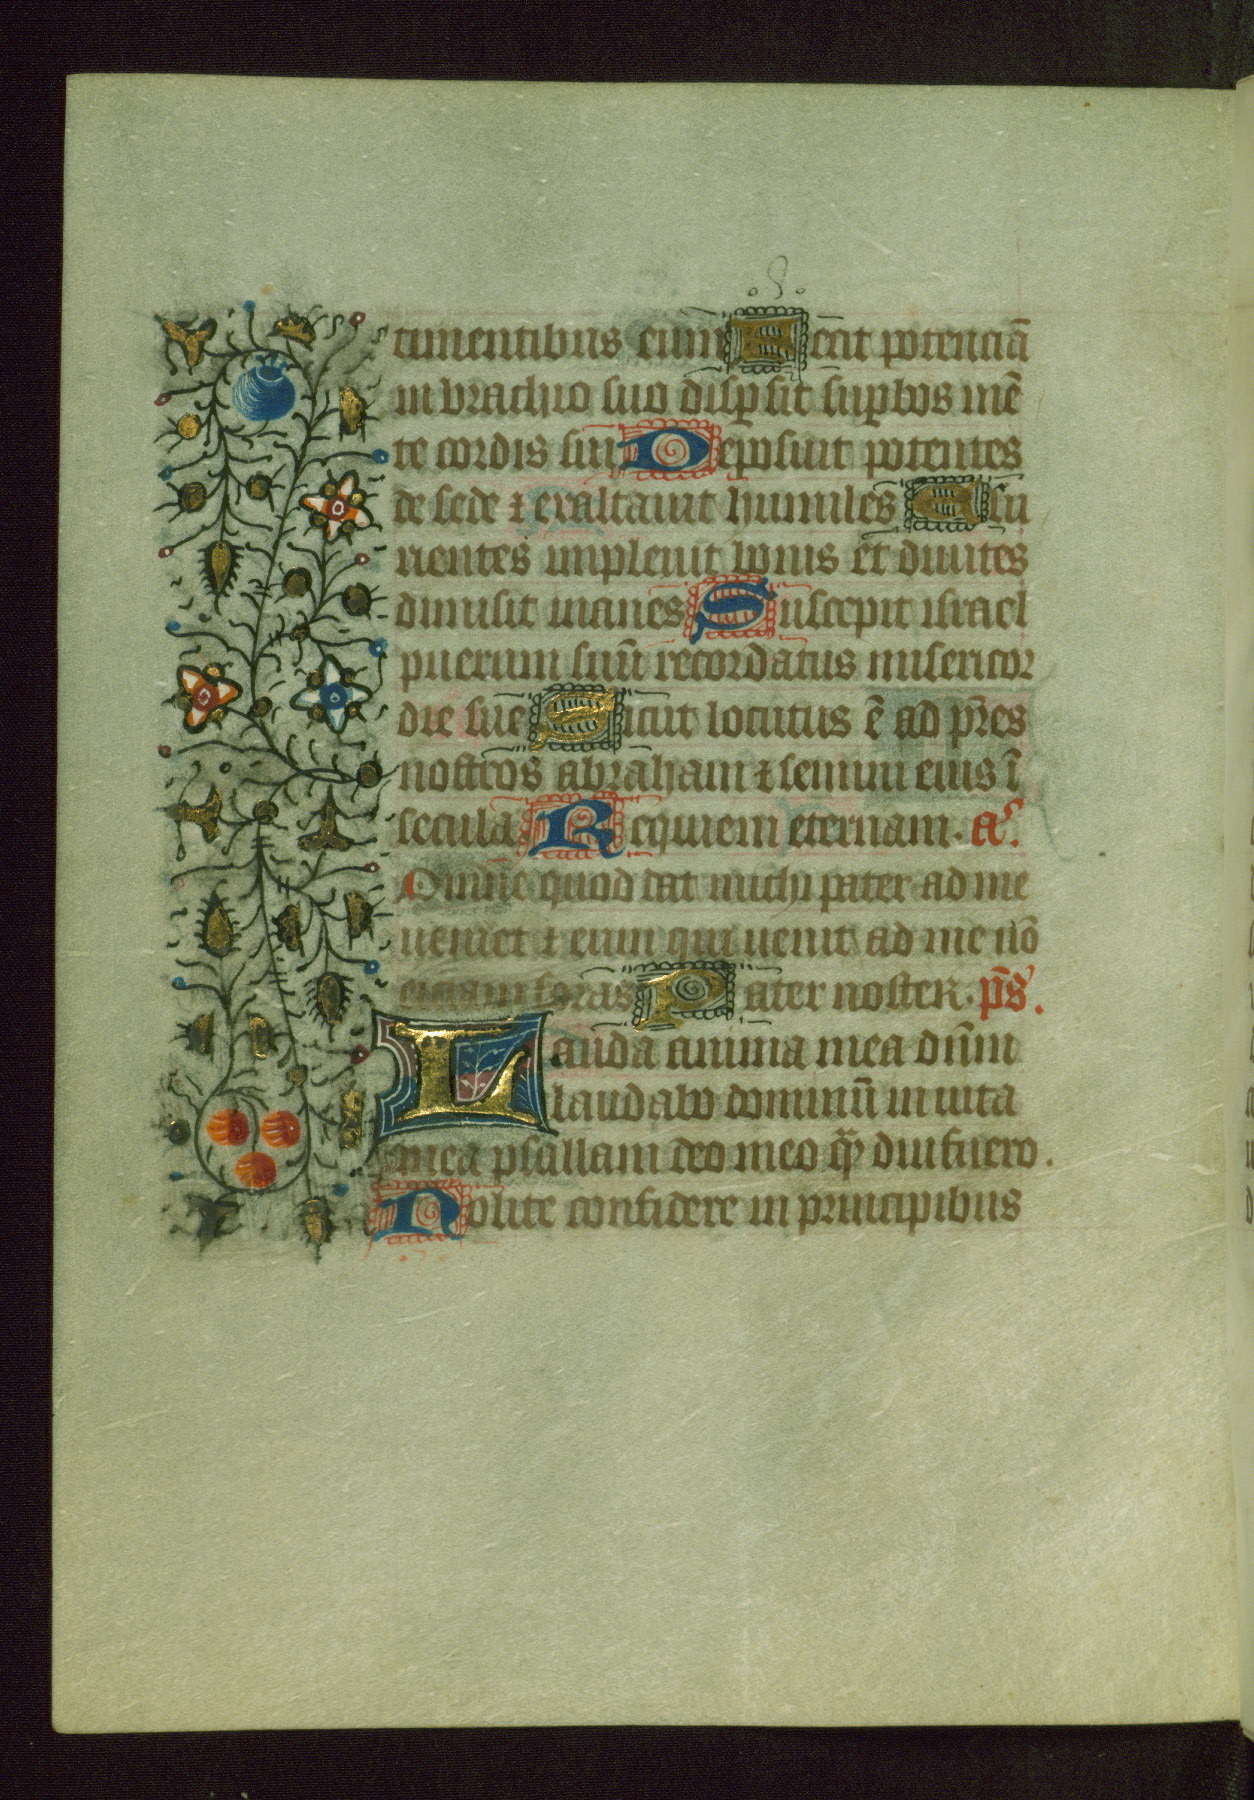 timentibus eum Fecit potenciā
in brachio suo disp̱sit sup̱bos mē
te cordis sui Deposuit potentes
de sede ⁊ exaltauit humiles Esu
rientes impleuit bonis et diuites
dimisit inanes Suscepit israel
puerum suū recordatus misericor
die sue Sicut locutus ē ad p̄res
nostros abraham ⁊ semini eius ī
secula Requiem eternam. aˢ.
Omne quod dat michi pater ad me
ueniet ⁊ eum qui uenit ad me nō
eiciam foras Pater noster. p̄s.
Lauda anima mea dn̄m
laudabo dominū in uita
mea psallam deo meo qᷓdiu fuero.
Nolite confidere in principibus